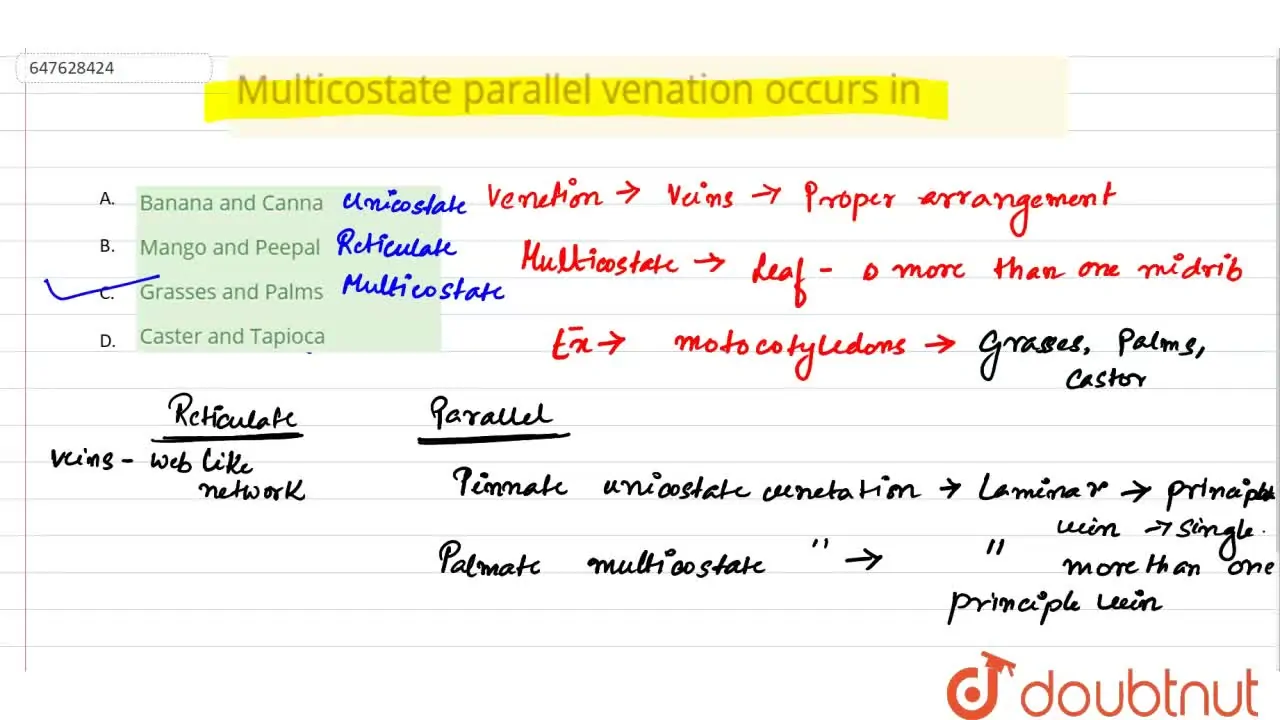 647628424
Multicostate parallel venation occurs in
A. Banana and Canna unicostate
B. Mango and Peepal Reticulate
C. Grasses and Palms Multicostate
D. Caster and Tapioca
Venetion → Veins → Proper arrangement
Multicostate → Leaf - more than one midrib
Ex → motocotyledons → Grasses, Palms,
castor
Reticulate
veins - web like
network
Parallel
Pinnate unicostate → Laminar → principle
vein → single.
Palmate multicostate " → " more than one
principle vein
doubtnut